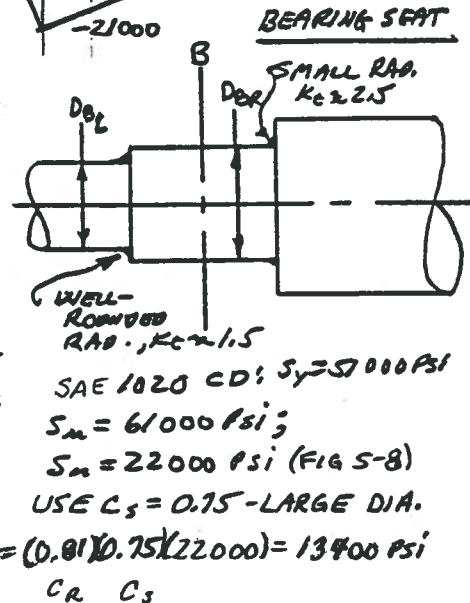 -21000
BEARING SEAT
B
SMALL RAD.
Kt ≈ 2.5
DBL
DBR
WELL-
ROUNDED
RAD., Kt ≈ 1.5
SAE 1020 CD: Sy = 51000 PSI
Su = 61000 PSI;
Sn = 22000 PSI (FIG 5-8)
USE Cs = 0.75 - LARGE DIA.
= (0.81)(0.75)(22000) = 13400 PSI
CR Cs